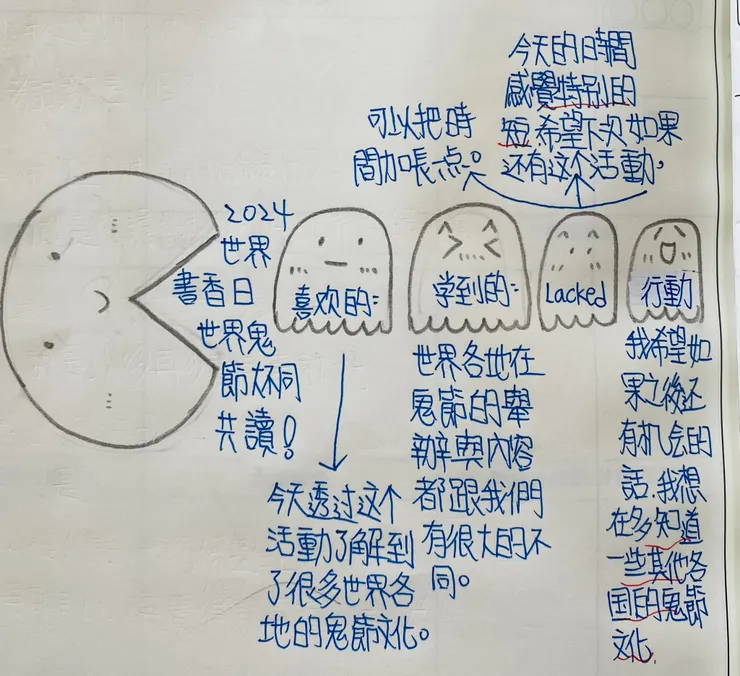 2024
世界
書香日
世界鬼
節大不同
共讀!
喜欢的:
今天透过这个
活動了解到
了很多世界各
地的鬼節文化。
学到的:
世界各地在
鬼節的舉
辦與內容
都跟我們
有很大的不
同。
Lacked
今天的日時間
感覺特別的
短,希望下次如果
还有这个活動,
可以把時
間加長一点。
行動
我希望如
果之後还
有机会的
話,我想
在多知道
一些其他各
国的鬼節
文化.